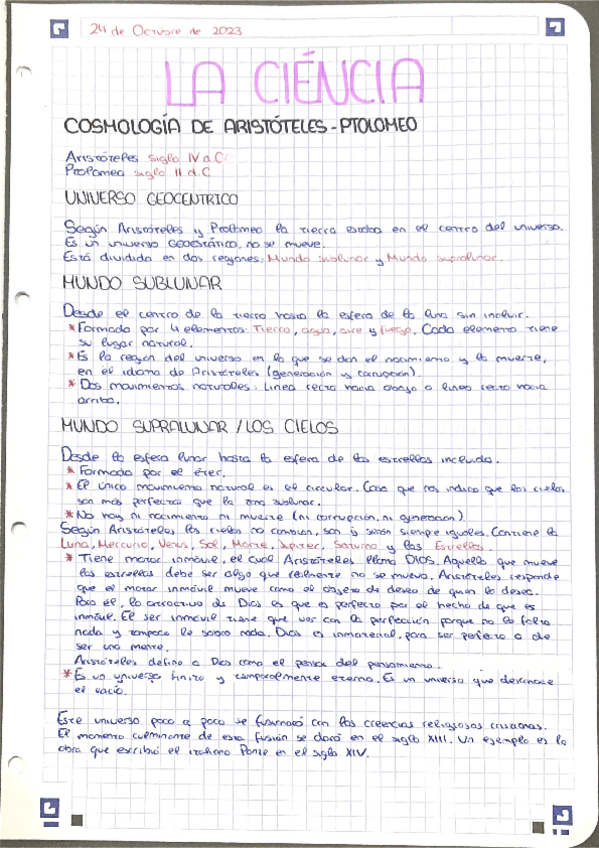 24 de Octubre de 2023
LA CIÉNCIA
COSMOLOGÍA DE ARISTÓTELES - PTOLOMEO
Aristóteles siglo IV a.C
Ptolomeo siglo II d.C
UNIVERSO GEOCENTRICO
Según Aristóteles y Ptolomeo la tierra estaba en el centro del universo.
Es un universo GEOESTÁTICO, no se mueve.
Está dividida en dos regiones: Mundo sublunar y Mundo supralunar.
MUNDO SUBLUNAR
Desde el centro de la tierra hasta la esfera de la luna sin incluir.
* Formado por 4 elementos: Tierra, agua, aire y fuego. Cada elemento tiene
su lugar natural.
* Es la región del universo en la que se dan el nacimiento y la muerte,
en el idioma de Aristóteles (generación y corrupción).
* Dos movimientos naturales: Linea recta hacia abajo o linea recta hacia
arriba.
MUNDO SUPRALUNAR / LOS CIELOS
Desde la esfera lunar hasta la esfera de las estrellas incluida.
* Formada por el éter.
* El único movimiento natural es el circular. Cosa que nos indica que los cielos
son más perfectos que la zona sublunar.
* No hay ni nacimiento ni muerte (ni corrupción, ni generación)
Según Aristóteles los cielos no cambian, son y serán siempre iguales. Contiene la
Luna, Mercurio, Venus, Sol, Marte, Júpiter, Saturno y las Estrellas.
* Tiene motor inmóvil, el cual Aristóteles llama DIOS. Aquello que mueve
las estrellas debe ser algo que realmente no se mueva. Aristóteles responde
que el motor inmóvil mueve como el objeto de deseo de quien lo desea.
Para él, lo atractivo de Dios es que es perfecto por el hecho de que es
inmóvil. El ser inmóvil tiene que ver con la perfección porque no le falta
nada y tampoco le sobra nada. Dios es inmaterial, para ser perfecto a de
ser una mente.
Aristóteles define a Dios como el pensar del pensamiento.
* Es un universo finito y temporalmente eterno. Es un universo que desconoce
el vacío.
Este universo poco a poco se fusionará con las creencias religiosas cristianas.
El momento culminante de esta fusión se dará en el siglo XIII. Un ejemplo es la
obra que escribió el italiano Dante en el siglo XIV.